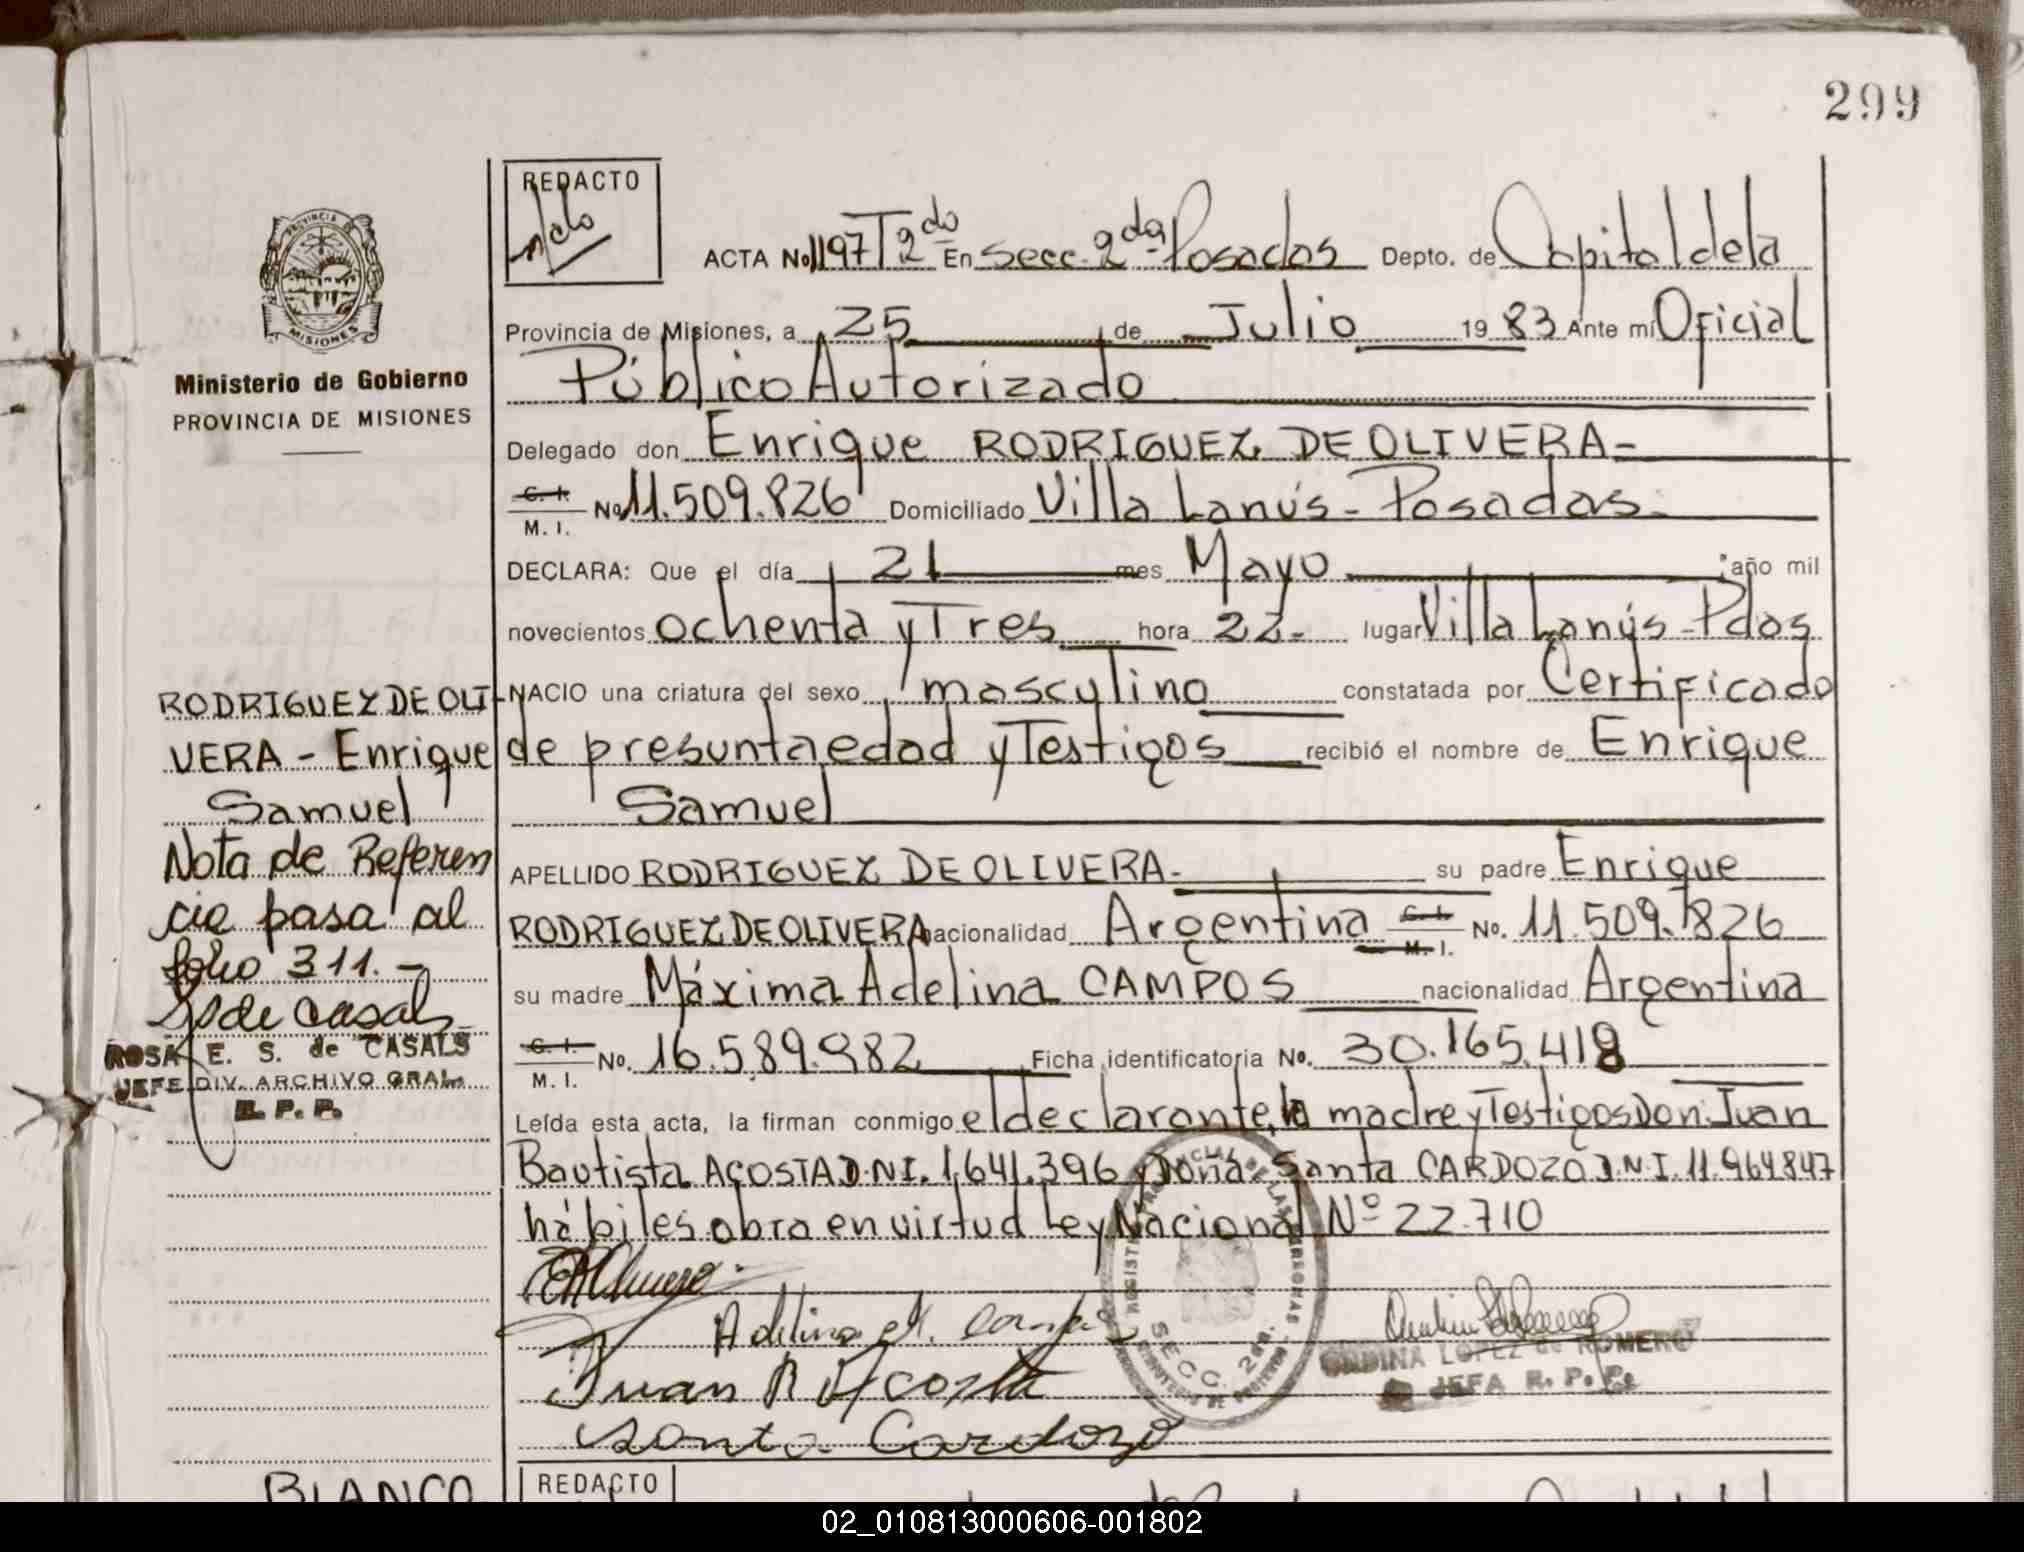 299
REDACTO
PROVINCIA
MISIONES
Ministerio de Gobierno
PROVINCIA DE MISIONES
ACTA No 1197 T 2do En Secc. 2da Posadas Depto. de Capital de la
Provincia de Misiones, a 25 de Julio 1983 Ante mí Oficial
Público Autorizado
Delegado don Enrique RODRIGUEZ DE OLIVERA-
C. I.
M. I. No 11.509.826 Domiciliado Villa Lanús - Posadas.
DECLARA: Que el día 21 mes Mayo año mil
novecientos ochenta y Tres hora 22- lugar Villa Lanús - Pdas
NACIO una criatura del sexo masculino constatada por Certificado
de presunta edad y Testigos recibió el nombre de Enrique
Samuel
APELLIDO RODRIGUEZ DE OLIVERA- su padre Enrique
RODRIGUEZ DE OLIVERA nacionalidad Argentina C. I. M. I. No. 11.509.826
su madre Máxima Adelina CAMPOS nacionalidad Argentina
C. I.
M. I. No. 16.589.982 Ficha identificatoria No. 30.165.418
Leída esta acta, la firman conmigo el declarante, la madre y Testigos Don: Juan
Bautista ACOSTA D.N.I. 1.641.396 y Doña Santa CARDOZO D.N.I. 11.964.847
hábiles obra en virtud Ley Nacional Nº 22.710
Adelina M. Campos
Juan B Acosta
Santa Cardozo
SECC. 2da.
LOPEZ de ROMERO
JEFA R. P. P.
RODRIGUEZ DE OLI-
VERA - Enrique
Samuel
Nota de Referen
cia pasa al
folio 311.-
S de Casals
ROSA E. S. de CASALS
JEFE DIV. ARCHIVO GRAL.
R. P. P.
BLANCO
REDACTO
02_010813000606-001802